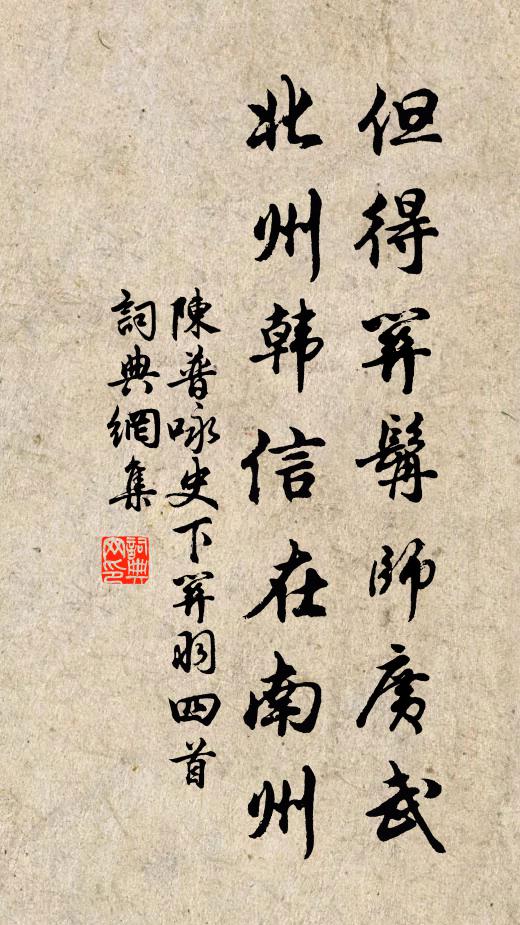 但得關髯師廣武
北州韓信在南州
陳普咏史下關羽四首
詞典網集
詞典网印